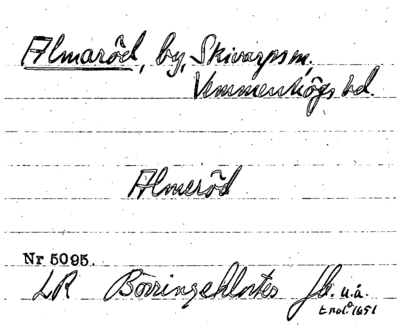 Almaröd, by, Skivarps sn,
Vemmenhögs hd.
Almeröd
Nr 5095.
LR Börringeklosters Jb. u.å.
1651